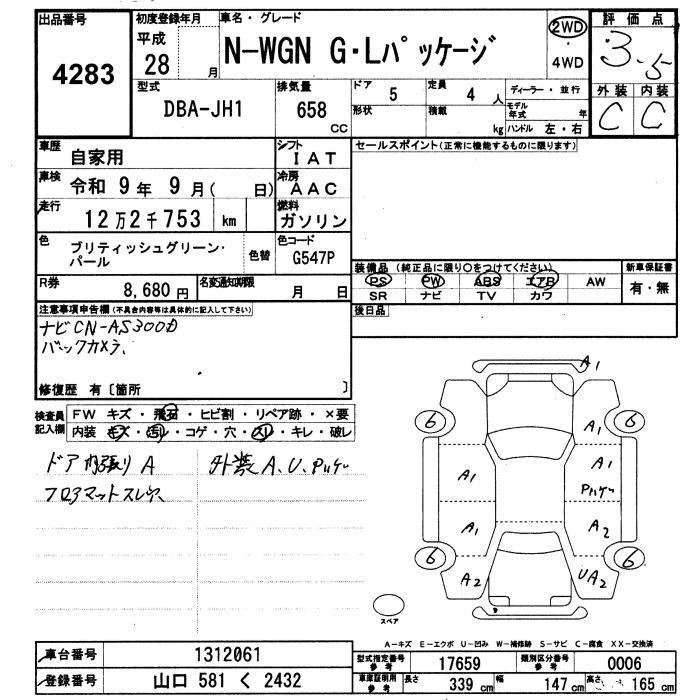 出品番号 4283
初度登録年月 平成 28 月
車名・グレード N-WGN G・Lパッケージ
2WD・4WD
評価点 3.5
外装 C 内装 C
型式 DBA-JH1
排気量 658 CC
ドア 5 定員 4 人
形状 積載 kg
ディーラー・並行
モデル年式 年
ハンドル 左・右
車歴 自家用
シフト IAT
セールスポイント(正常に機能するものに限ります)
車検 令和 9 年 9 月( 日)
冷房 AAC
走行 12万2千753 km
燃料 ガソリン
色 ブリティッシュグリーン・パール
色替
色コード G547P
装備品(純正品に限り○をつけてください)
PS PW ABS エアB AW
SR ナビ TV カワ
新車保証書 有・無
R券 8,680円
名変通知期限 月 日
後日品
注意事項申告欄(不具合内容等は具体的に記入して下さい)
ナビCN-AS300D
バックカメラ、
修復歴 有〔箇所 〕
検査員記入欄
FW キズ・飛石・ヒビ割・リペア跡・×要
内装 キズ・汚レ・コゲ・穴・スレ・キレ・破レ
ドア内張り A 外装 A、U、Pハゲ
フロアマットスレ
A1
6 A1 6
A1 A1
Pハゲ
A1 A2
6 6
A2 UA2
スペア
A-キズ E-エクボ U-凹み W-補修跡 S-サビ C-腐食 XX-交換済
車台番号 1312061
型式指定番号 参考 17659 類別区分番号 参考 0006
登録番号 山口 581 く 2432
車庫証明用 参考 長さ 339 cm 幅 147 cm 高さ 165 cm